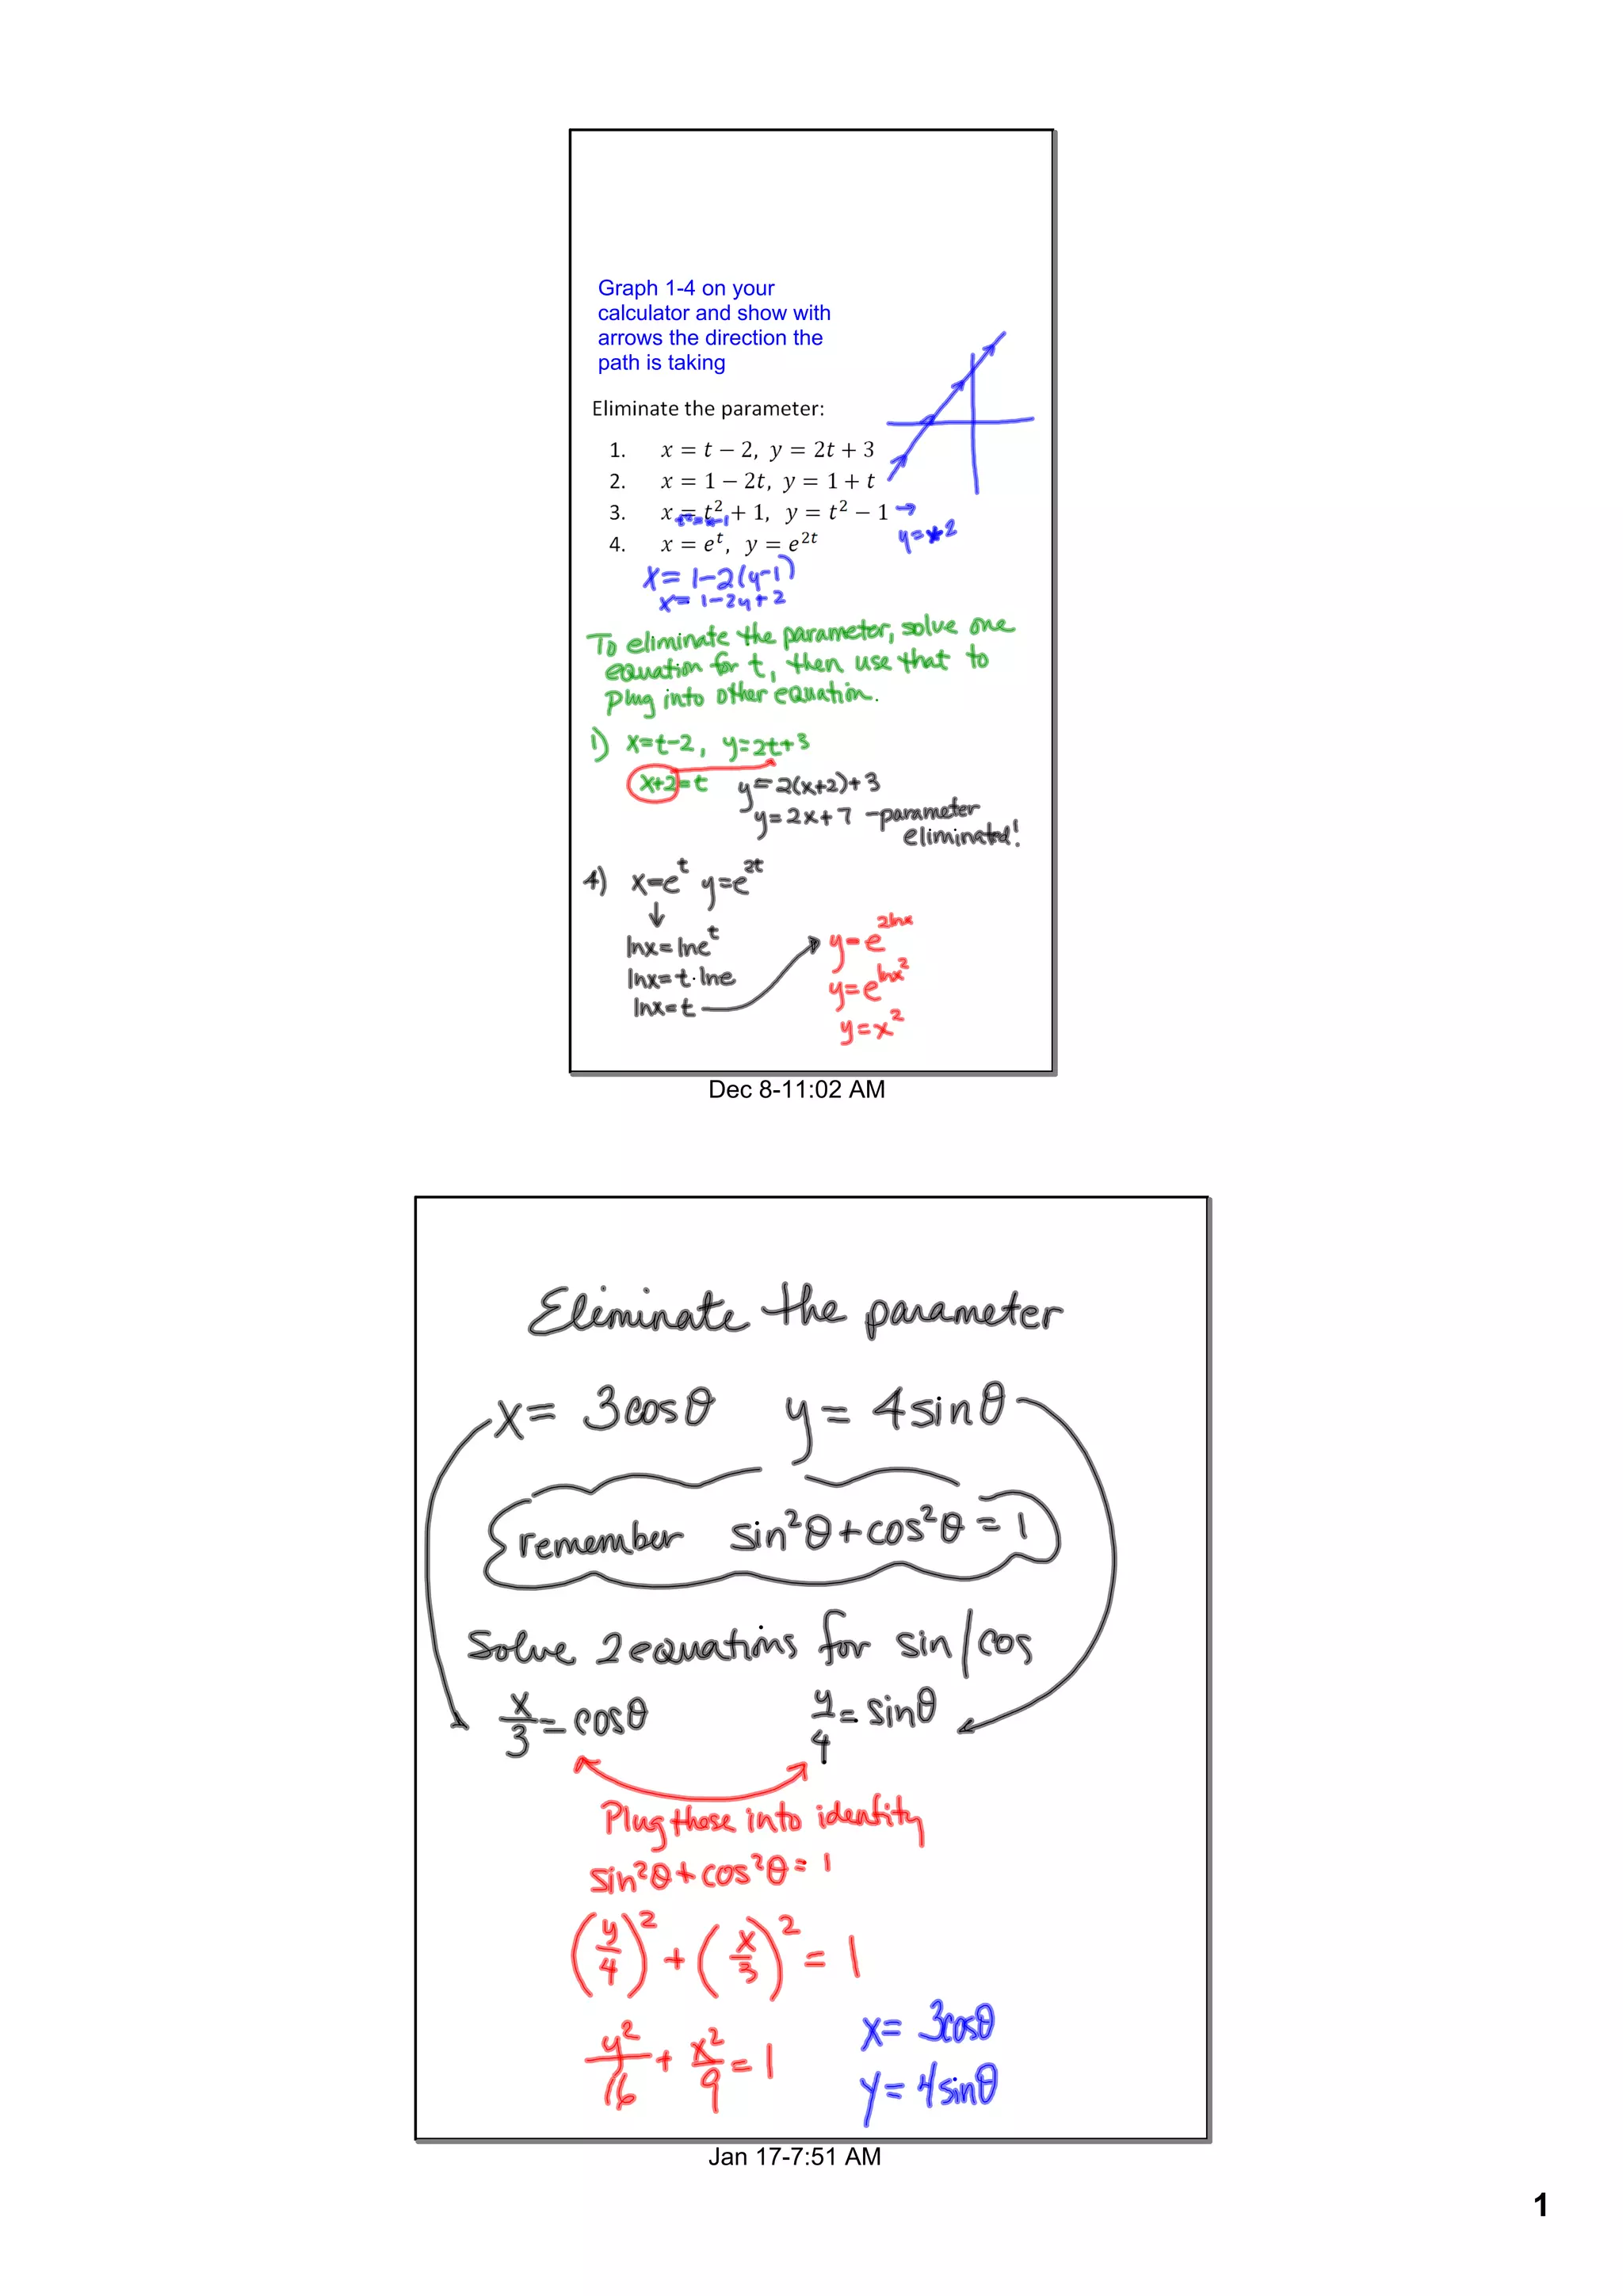 Graph 1-4 on your
calculator and show with
arrows the direction the
path is taking
Eliminate the parameter:
1. x = t − 2, y = 2t + 3
2. x = 1 − 2t, y = 1 + t
3. x = t² + 1, y = t² − 1 →
t² = x−1
y = x−2
4. x = eᵗ, y = e²ᵗ
x = 1−2(y−1)
x = 1−2y+2
To eliminate the parameter, solve one
equation for t, then use that to
plug into other equation.
1) x=t−2, y=2t+3
x+2=t y=2(x+2)+3
y=2x+7 −parameter
eliminated!
4) x=eᵗ y=e²ᵗ
↓
lnx=lneᵗ
lnx=t·lne
lnx=t
y=e^(2lnx)
y=e^(lnx²)
y=x²
Dec 8-11:02 AM
Eliminate the parameter
x= 3cosθ y= 4sinθ
remember sin²θ+cos²θ=1
Solve 2 equations for sin/cos
x/3 = cosθ y/4 = sinθ
Plug those into identity
sin²θ+cos²θ=1
(y/4)² + (x/3)² = 1
y²/16 + x²/9 = 1
x= 3cosθ
y= 4sinθ
Jan 17-7:51 AM
1